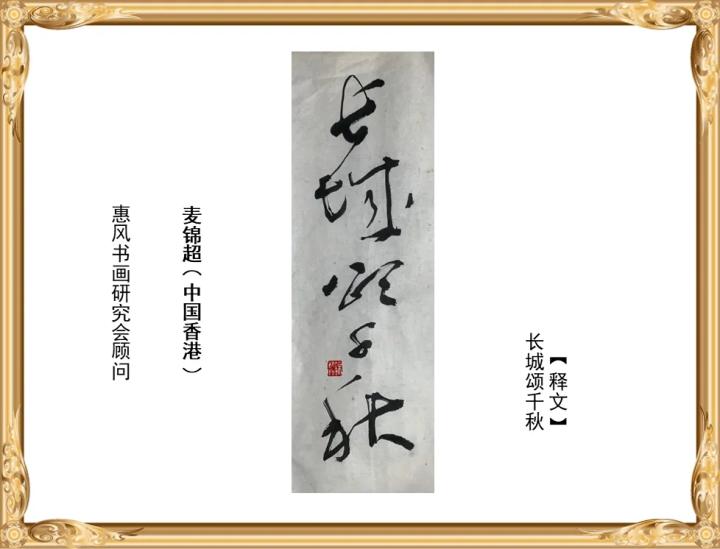 【释文】
长城颂千秋
长城颂千秋
麦锦超（中国香港）
惠风书画研究会顾问